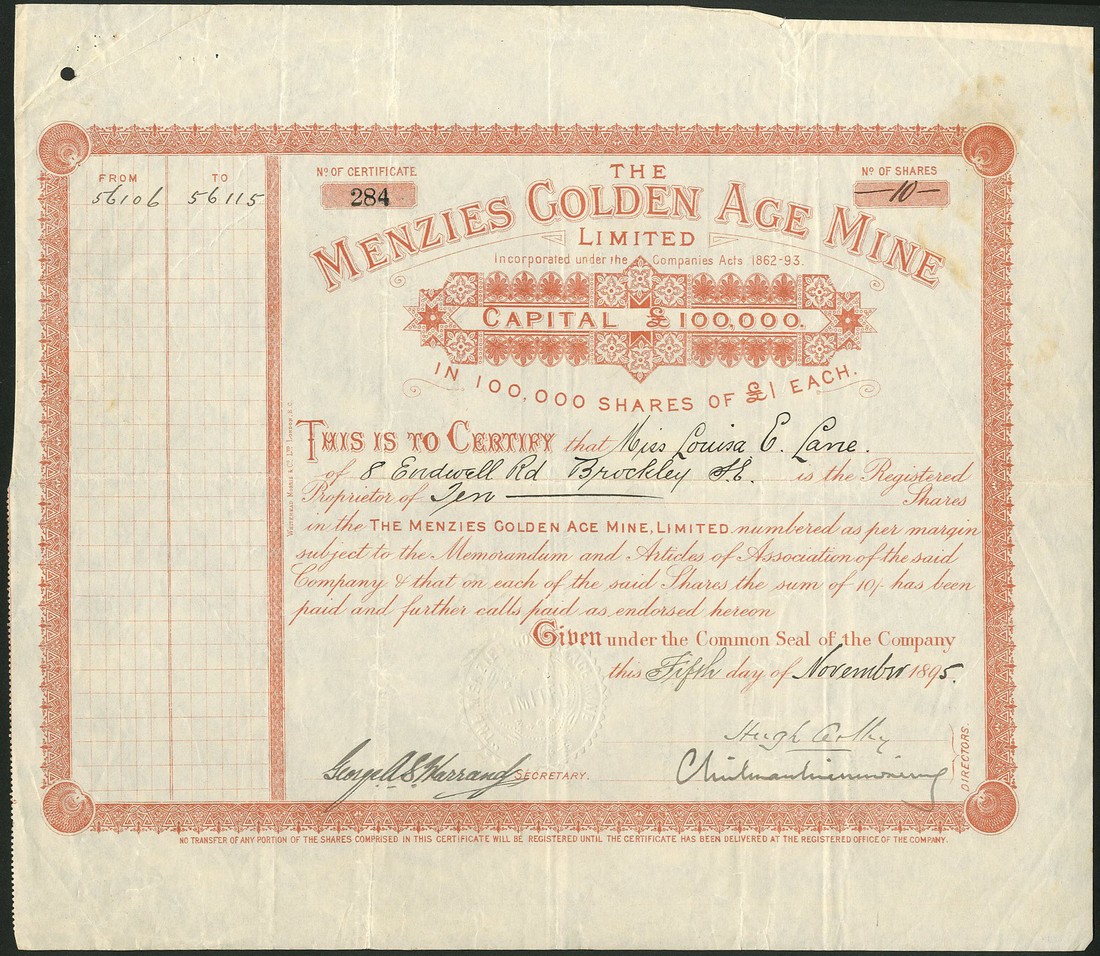 FROM TO
56106 56115
No OF CERTIFICATE
284
No OF SHARES
—10—
THE
MENZIES GOLDEN AGE MINE
LIMITED
Incorporated under the Companies Acts 1862-93.
CAPITAL £100,000.
IN 100,000 SHARES OF £1 EACH.
THIS IS TO CERTIFY that Miss Louisa E. Lane.
of 8 Endwell Rd Brockley S.E. is the Registered
Proprietor of Ten Shares
in the THE MENZIES GOLDEN AGE MINE, LIMITED numbered as per margin
subject to the Memorandum and Articles of Association of the said
Company & that on each of the said Shares the sum of 10/- has been
paid and further calls paid as endorsed hereon
Given under the Common Seal of the Company
this Fifth day of November 1895.
Hugh
George A S Warrand SECRETARY.
DIRECTORS.
WHITEHEAD MORRIS & CO. LTD LONDON, E.C.
NO TRANSFER OF ANY PORTION OF THE SHARES COMPRISED IN THIS CERTIFICATE WILL BE REGISTERED UNTIL THE CERTIFICATE HAS BEEN DELIVERED AT THE REGISTERED OFFICE OF THE COMPANY.